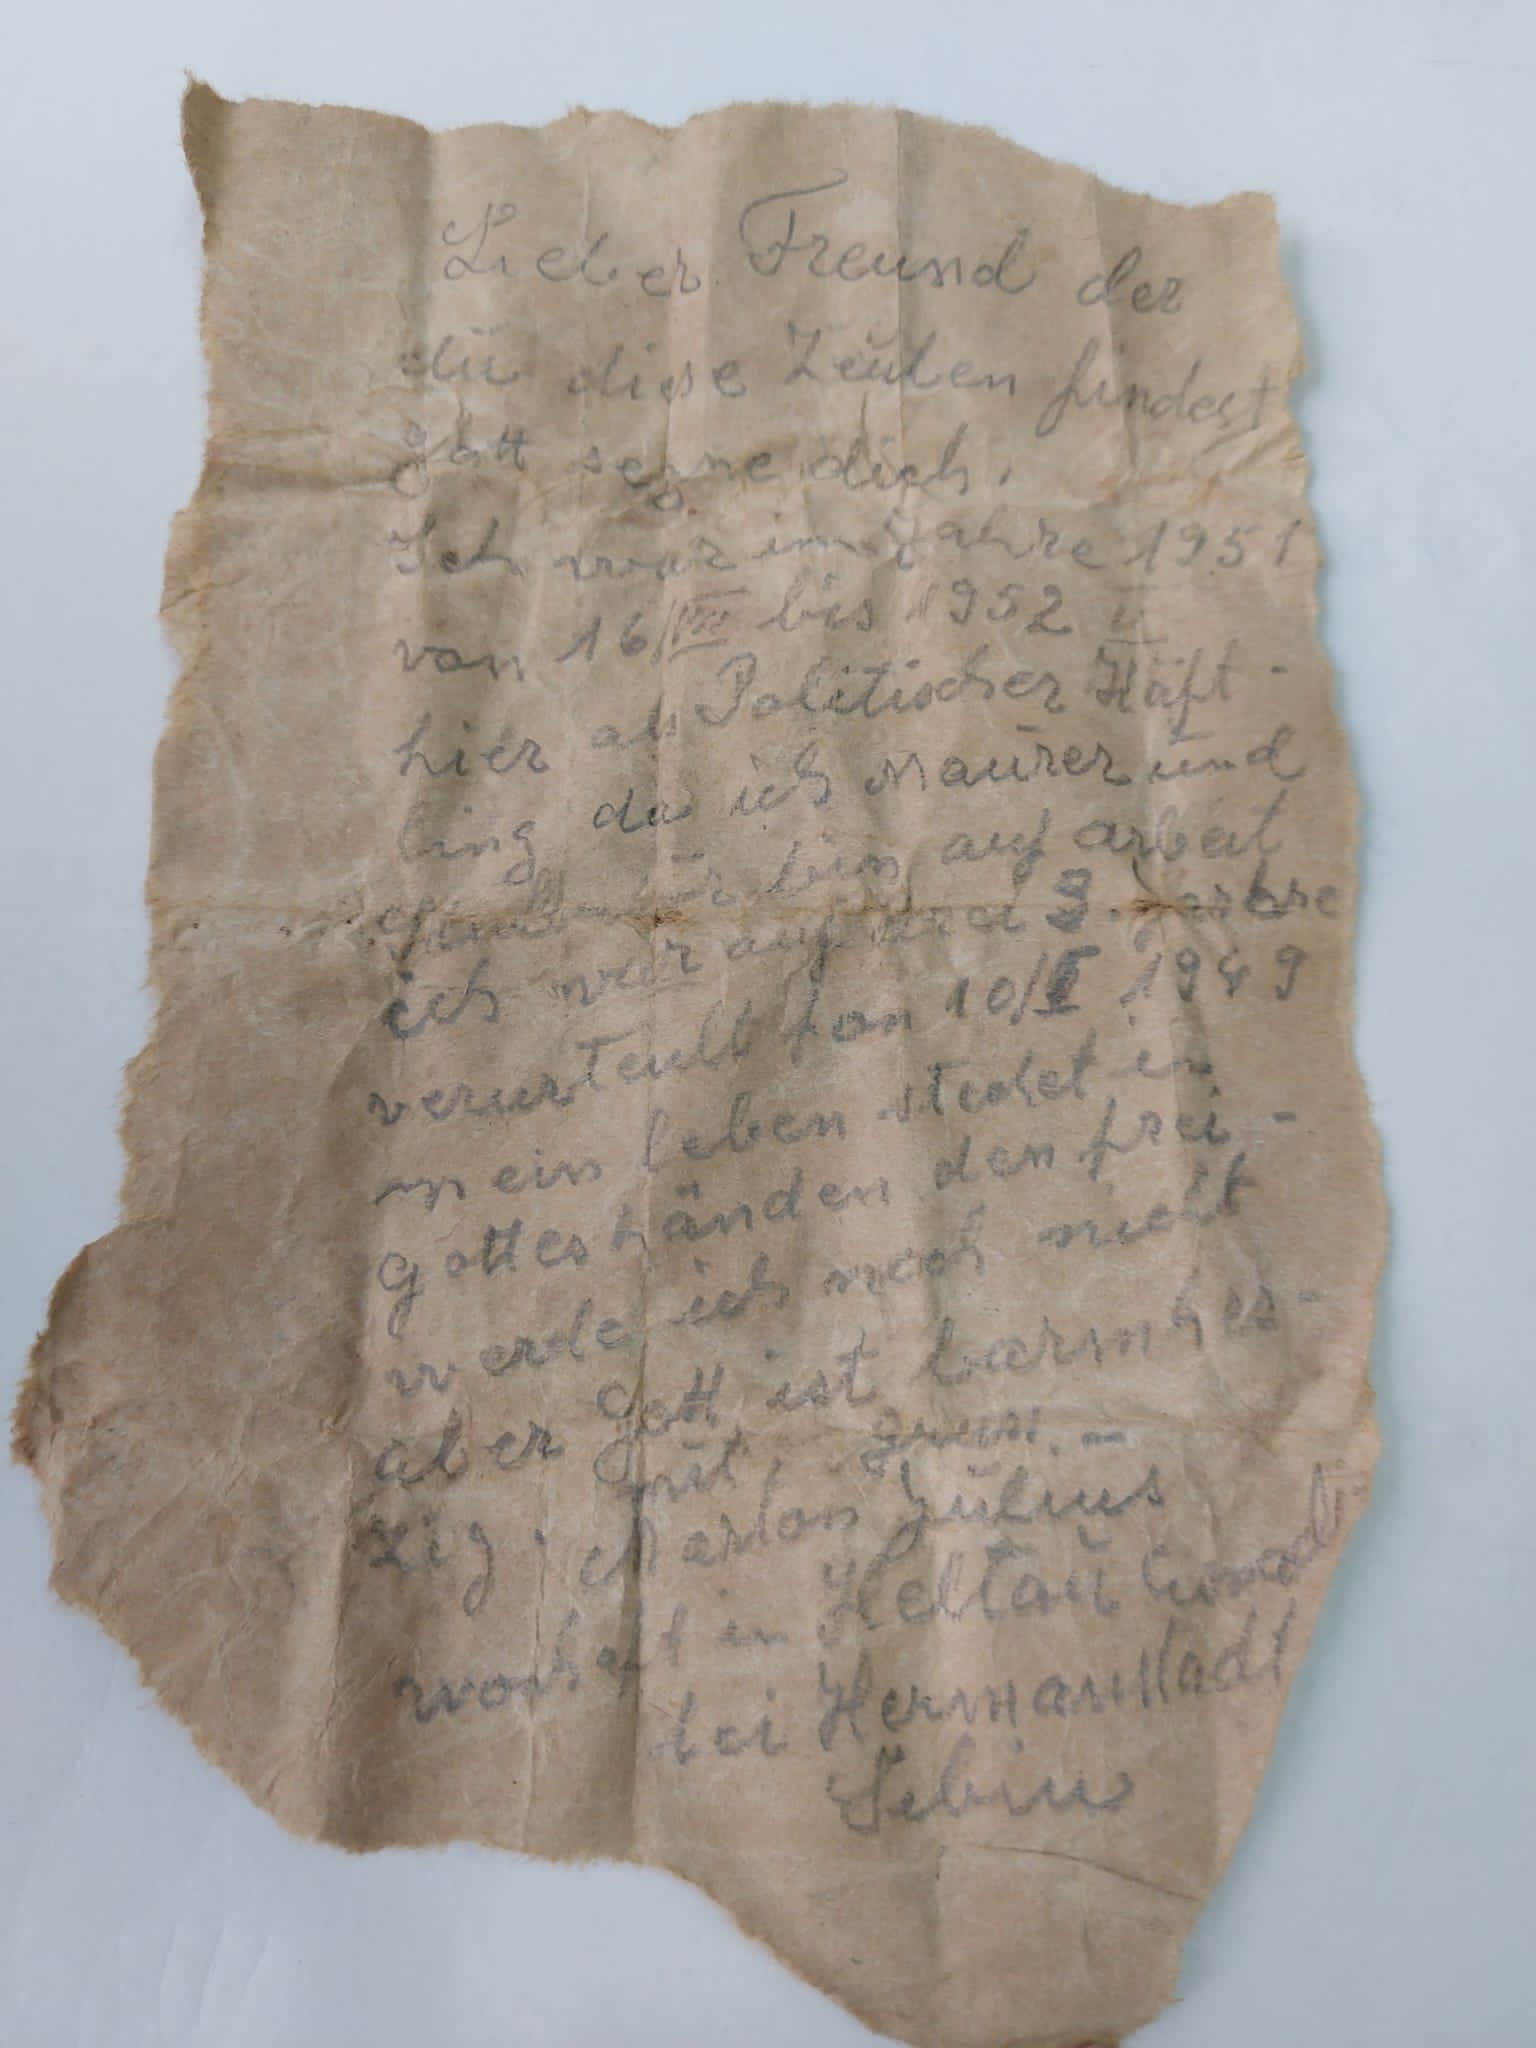 Lieber Freund der
du diese Zeulen findest
gott segne dich.
Ich war im Jahre 1951
von 16/VII bis 1952 II
hier als Politischer Häft-
ling da ich Maurer und
bin auf arbeit
ich war auf drei 3. jarhre
verurteult fon 10/I 1949
mein leben stechet in
gottes händen den frei-
werde ich noch nicht
aber gott ist barmher-
zig. mit. gruss. -
Marton Julius
wohaft in Heltau
bei Hermanstadt
Sebiu